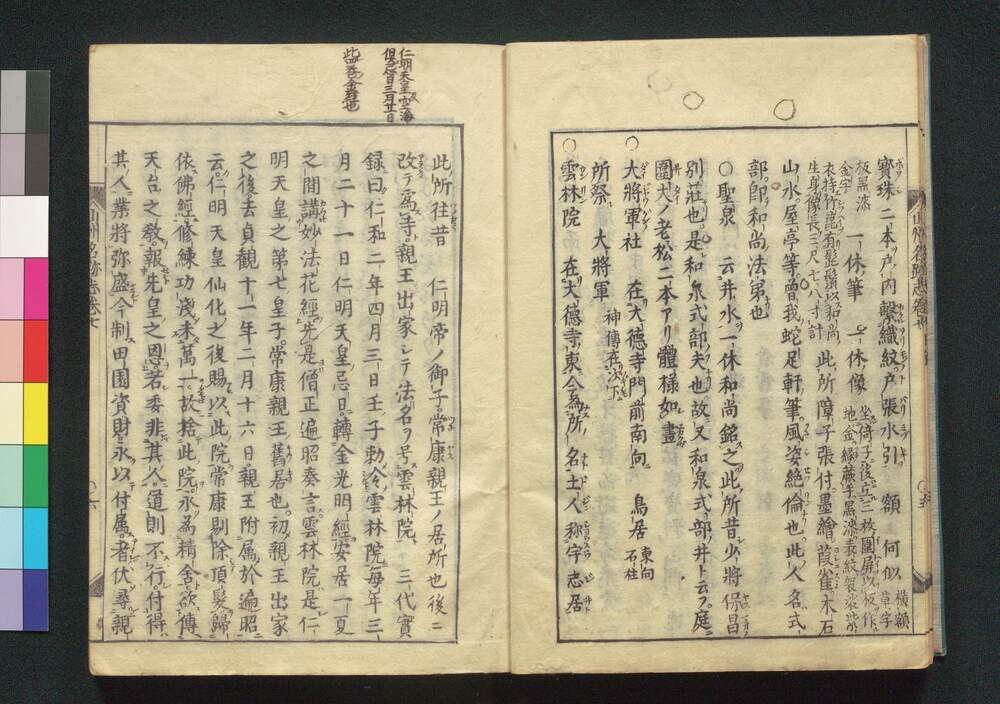 寶珠二本戸内繋織紋戸張水引 額 何似 横額草字
板黒漆金字 一休筆 一休像 坐倚子後立三枚圍屏以板作
地金緑藤手黒漆表紋袈裟
衣持竹篦有髭鬚以和尚
生身像長三尺七八寸計 此所障子張付墨繪葭雀木石
山水屋亭等曽我蛇足軒筆風姿絶倫也此人名式
部即和尚法弟也
〇聖泉 云井水一休和尚銘之此所昔少將保昌
別莊也是和泉式部夫也故又和泉式部井ト云フ庭
圍大ノ老松二本アリ體様如畫
〇大將軍社 在大德寺門前南向 鳥居 東向石柱
所祭 大將軍 神傳在次下
〇雲林院 在大德寺東今為所ノ名土人称宇志居
仁明天皇
三月廿日
此所往昔 仁明帝ノ御子常康親王ノ居所也後ニ
改テ為寺親王出家シテ法名ヲ号雲林院 三代實
録曰仁和二年四月三日壬子勅令雲林院毎年三
月二十一日仁明天皇忌日轉金光明經安居一夏
之間講妙法花經先是僧正遍昭奏言雲林院是仁
明天皇之第七皇子常康親王舊居也初親王出家
之後去貞観十一年二月十六日親王附属於遍昭
云仁明天皇仙化之後賜以此院常康剔除頂髮歸
依佛經修練功淺未萬一故捨此院永為精舍欲傳
天台之敎報先皇之恩若委非其人道則不行付得
其人業將弥盛今制田園資財永以付属者伏尋親